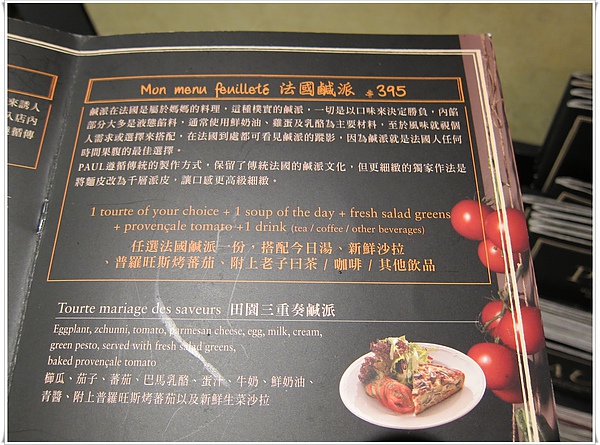 來誘人
入店內
遵循傳
Mon menu feuilleté 法國鹹派 $395
鹹派在法國是屬於媽媽的料理，這種樸實的鹹派，一切是以口味來決定勝負，內餡
部分大多是液態餡料，通常使用鮮奶油、雞蛋及乳酪為主要材料，至於風味就視個
人需求或選擇來搭配，在法國到處都可看見鹹派的蹤影，因為鹹派就是法國人任何
時間果腹的最佳選擇。
PAUL遵循傳統的製作方式，保留了傳統法國的鹹派文化，但更細緻的獨家作法是
將麵皮改為千層派皮，讓口感更高級細緻。
1 tourte of your choice + 1 soup of the day + fresh salad greens
+ provençale tomato +1 drink (tea / coffee / other beverages)
任選法國鹹派一份，搭配今日湯、新鮮沙拉
、普羅旺斯烤蕃茄、附上老子曰茶 / 咖啡 / 其他飲品
Tourte mariage des saveurs 田園三重奏鹹派
Eggplant, zchunni, tomato, parmesan cheese, egg, milk, cream,
green pesto, served with fresh salad greens,
baked provençale tomato
櫛瓜、茄子、蕃茄、巴馬乳酪、蛋汁、牛奶、鮮奶油、
青醬、附上普羅旺斯烤蕃茄以及新鮮生菜沙拉